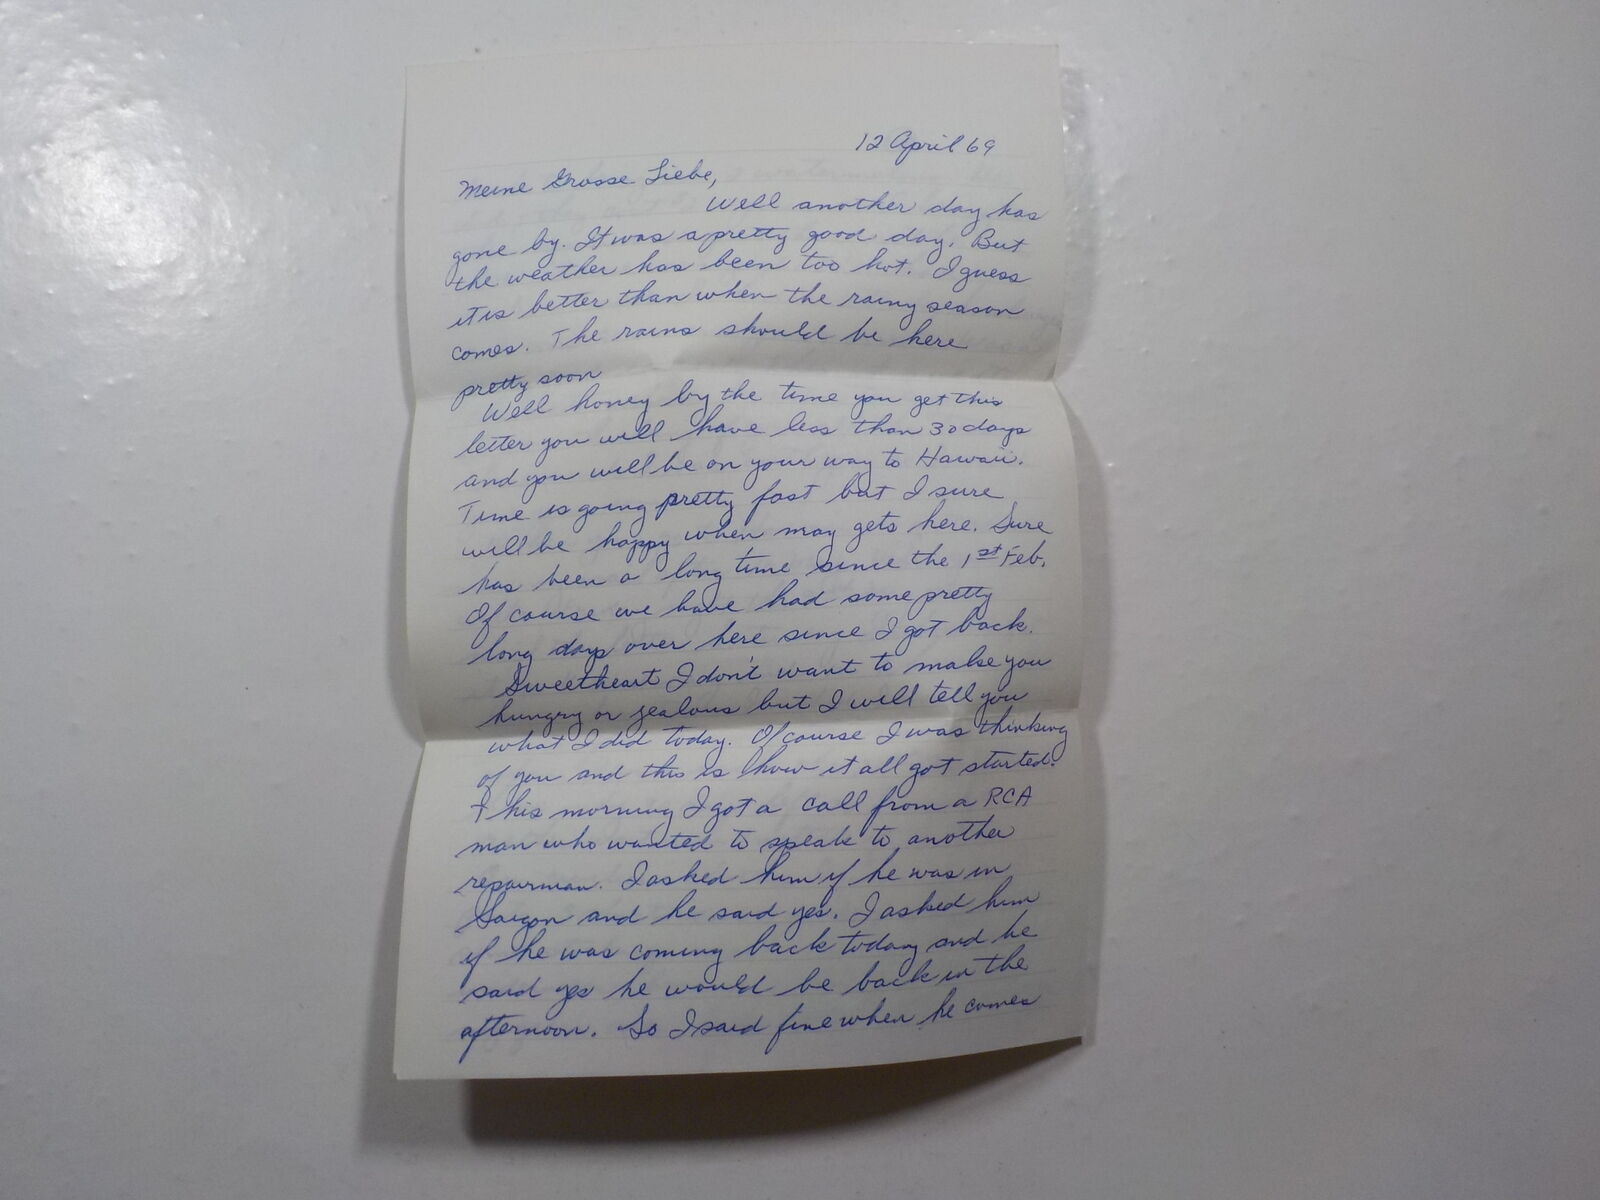 12 April 69
Meine Grosse Liebe,
Well another day has
gone by. It was a pretty good day. But
the weather has been too hot. I guess
it is better than when the rainy season
comes. The rains should be here
pretty soon
Well honey by the time you get this
letter you will have less than 30 days
and you will be on your way to Hawaii.
Time is going pretty fast but I sure
will be happy when may gets here. Sure
has been a long time since the 1st Feb.
Of course we have had some pretty
long days over here since I got back.
Sweetheart I don't want to make you
hungry or jealous but I will tell you
what I did today. Of course I was thinking
of you and this is how it all got started.
This morning I got a call from a RCA
man who wanted to speak to another
repairman. I asked him if he was in
Saigon and he said yes. I asked him
if he was coming back today and he
said yes he would be back in the
afternoon. So I said fine when he comes